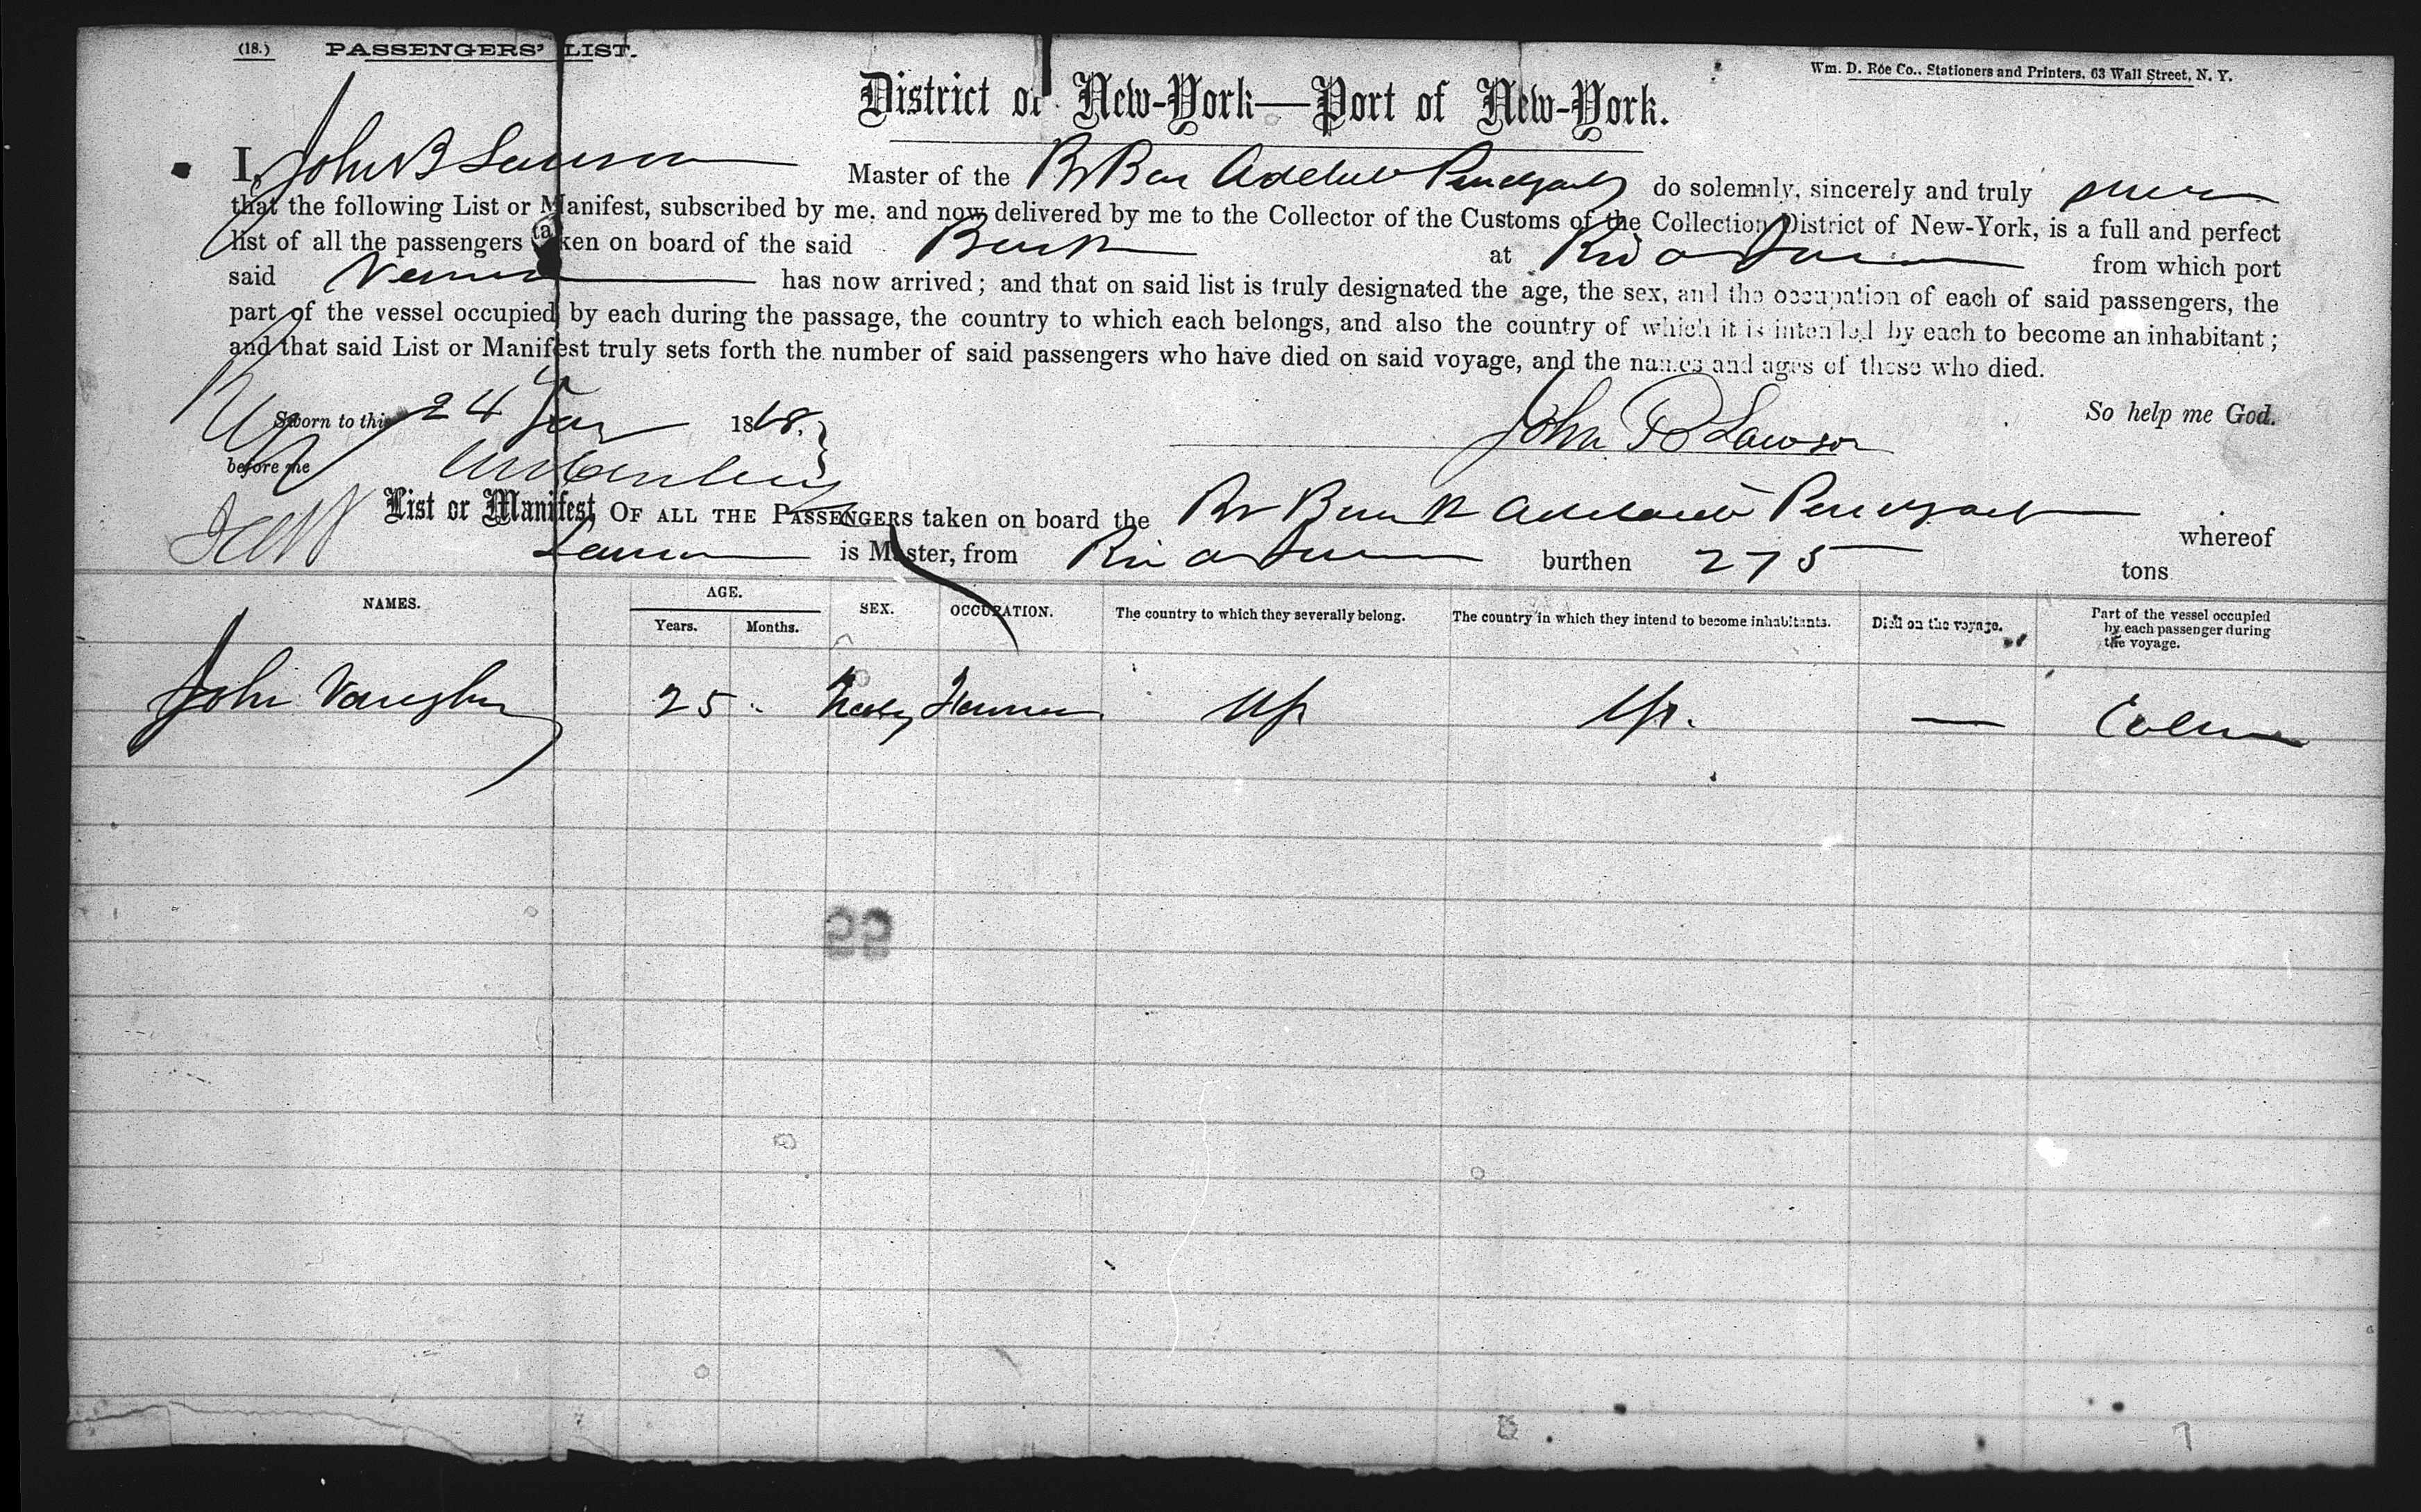 (18.) PASSENGERS' LIST.
Wm. D. Roe Co., Stationers and Printers, 63 Wall Street, N. Y.
District of New-York—Port of New-York.
I, John B Lawson Master of the Br Bar Adelaide Pendergast do solemnly, sincerely and truly swear
that the following List or Manifest, subscribed by me, and now delivered by me to the Collector of the Customs of the Collection District of New-York, is a full and perfect
list of all the passengers taken on board of the said Bark at Rio from which port
said Vessel has now arrived; and that on said list is truly designated the age, the sex, and the occupation of each of said passengers, the
part of the vessel occupied by each during the passage, the country to which each belongs, and also the country of which it is intended by each to become an inhabitant;
and that said List or Manifest truly sets forth the number of said passengers who have died on said voyage, and the names and ages of those who died.
So help me God.
Sworn to this 24 Jan 1868.
John B Lawson
before me
List or Manifest OF ALL THE PASSENGERS taken on board the Br Bark Adelaide Pendergast whereof
Lawson is Master, from Rio burthen 275 tons
NAMES. AGE. Years. Months. SEX. OCCUPATION. The country to which they severally belong. The country in which they intend to become inhabitants. Died on the voyage. Part of the vessel occupied by each passenger during the voyage.
John Vaughn 25 US US. —